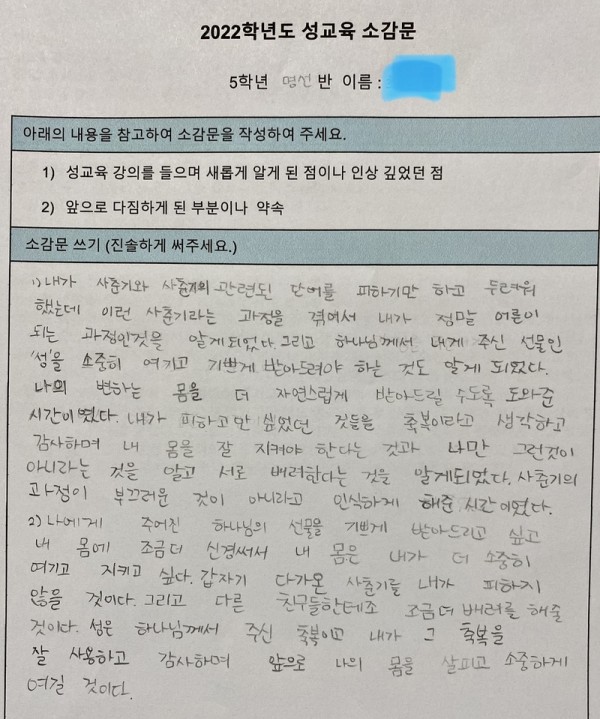 2022학년도 성교육 소감문
5학년 명선 반 이름 :
아래의 내용을 참고하여 소감문을 작성하여 주세요.
1) 성교육 강의를 들으며 새롭게 알게 된 점이나 인상 깊었던 점
2) 앞으로 다짐하게 된 부분이나 약속
소감문 쓰기 (진솔하게 써주세요.)
1) 내가 사춘기와 사춘기의 관련된 단어를 피하기만 하고 두려워
했는데 이런 사춘기라는 과정을 겪어서 내가 정말 어른이
되는 과정인것을 알게되었다. 그리고 하나님께서 내게 주신 선물인
'성'을 소중히 여기고 기쁘게 받아드려야 하는 것도 알게 되었다.
나의 변하는 몸을 더 자연스럽게 받아드릴 수도록 도와준
시간이였다. 내가 피하고만 싶었던 것들을 축복이라고 생각하고
감사하며 내 몸을 잘 지켜야 한다는 것과 나만 그런것이
아니라는 것을 알고 서로 배려한다는 것을 알게되었다. 사춘기의
과정이 부끄러운 것이 아니라고 인식하게 해준 시간이였다.
2) 나에게 주어진 하나님의 선물을 기쁘게 받아드리고 싶고
내 몸에 조금더 신경써서 내 몸은 내가 더 소중히
여기고 지키고 싶다. 갑자기 다가온 사춘기를 내가 피하지
않을 것이다. 그리고 다른 친구들한테도 조금더 배려를 해줄
것이다. 성은 하나님께서 주신 축복이고 내가 그 축복을
잘 사용하고 감사하며 앞으로 나의 몸을 살피고 소중하게
여길 것이다.